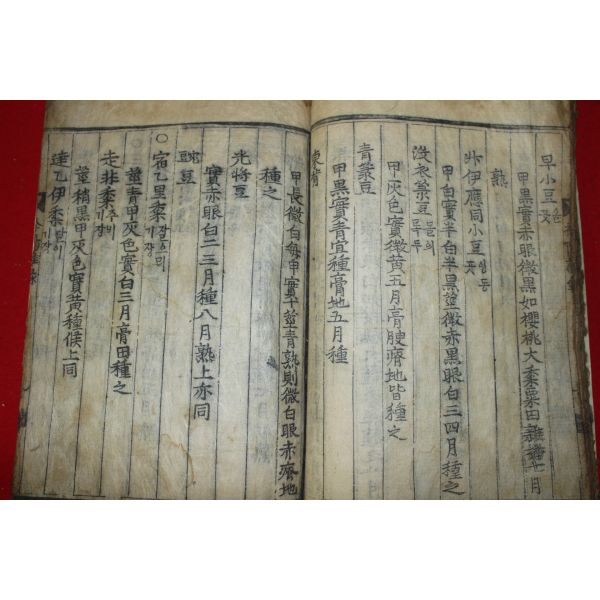 早小豆 올풋
甲黑實赤眼微黑如櫻桃大黍粟田雜種七月
熟
伻應同小豆 잉동풋
甲白實半白半黑莖微赤黑眼白三四月種之
沒衣菉豆 몰의록두
甲灰色實微黃五月膏腴瘠地皆種之
青菉豆
甲黑實青宜種膏地五月種
東背
甲長微白每甲實十莖青熟則微白眼赤瘠地
種之
光將豆
實赤眼白二三月種八月熟上亦同
豌豆
○宿乙里黍 잘으리기장
莖青甲灰色實白三月膏田種之
走非黍 주비기장
莖稍黑甲灰色實黃種候上同
達乙伊黍 달이기장